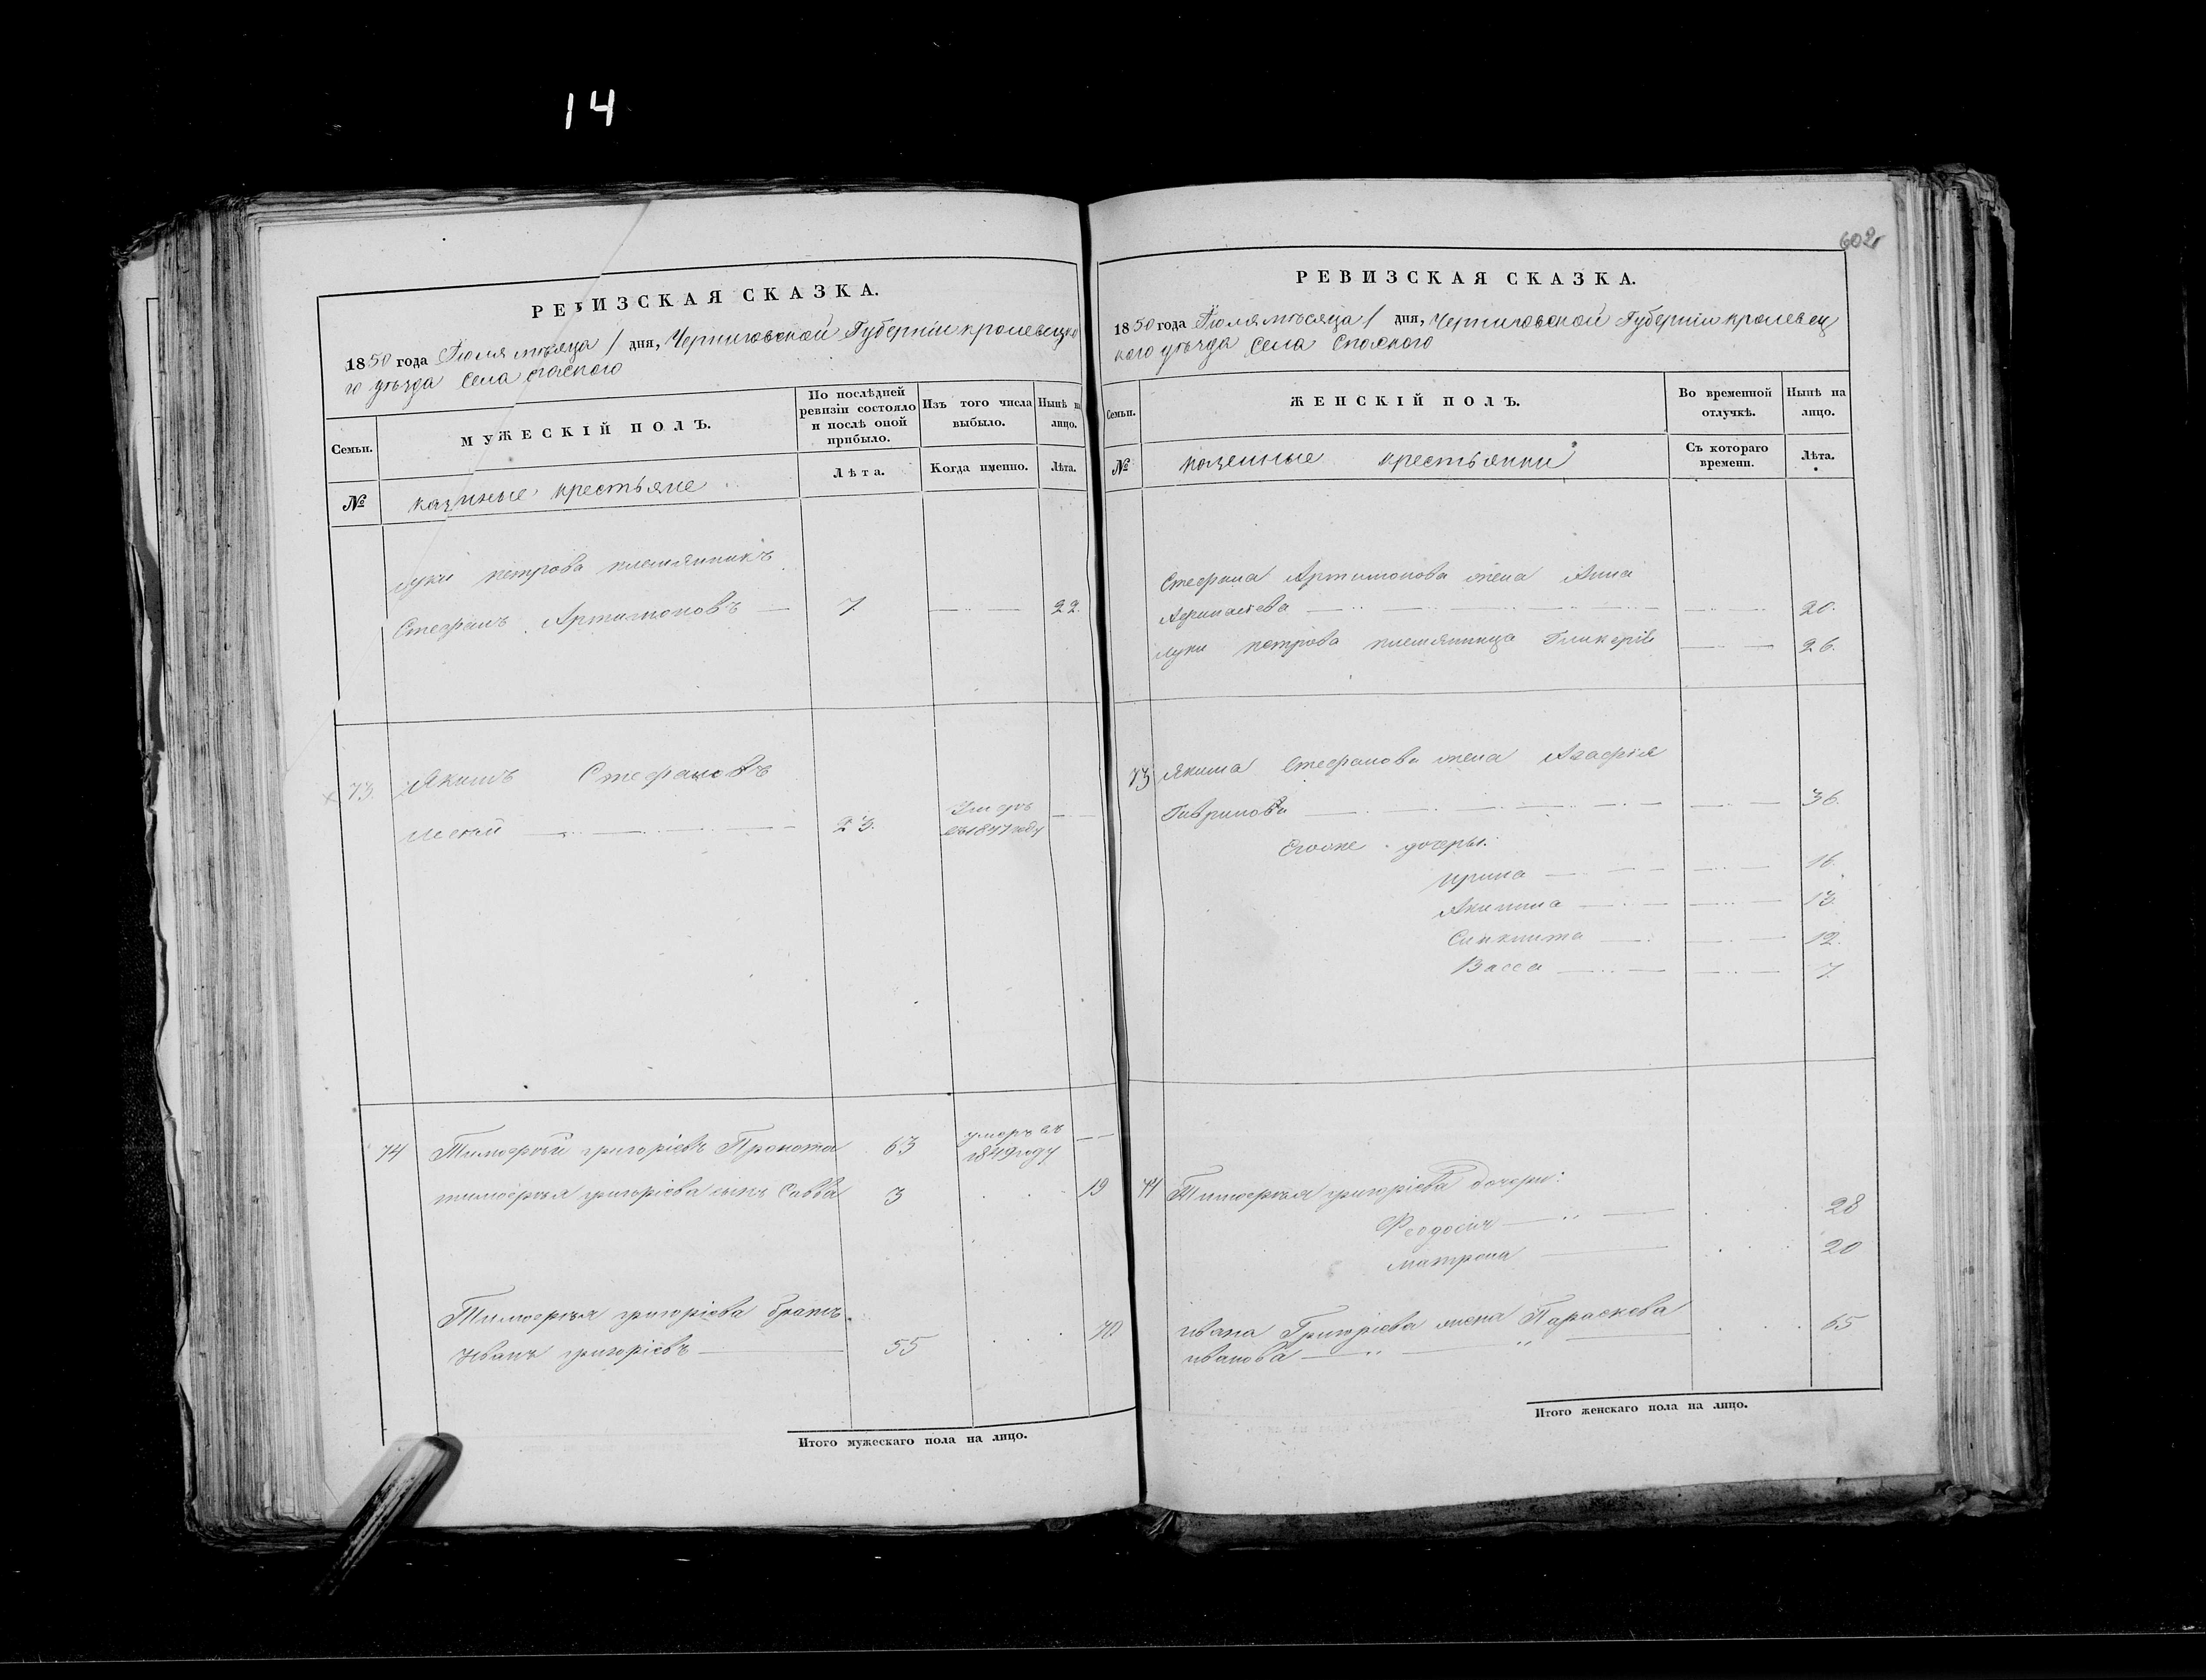 14
602
РЕВИЗСКАЯ СКАЗКА.
1850 года Июля мѣсяца 1 дня, Черниговской Губерніи кролевецко
го уѣзда Села спаского
Семьи.
МУЖЕСКІЙ ПОЛЪ.
По послѣдней ревизіи состояло и послѣ оной прибыло.
Изъ того числа выбыло.
Нынѣ на лицо.
№
казенные крестьяне
Лѣта.
Когда именно.
Лѣта.
Луки петрова племянникъ
Стефанъ Артимоновъ — 7. — 22.
73. Якимъ Стефановъ
23. Умеръ
въ 1847 году —
74 Тимофѣй григоріевъ Прокопа 63 умеръ въ
1849 году —
тимофѣя григоріева сынъ Савва 3 19
Тимофѣя григоріева братъ
Иванъ григоріевъ — 55 70
Итого мужескаго пола на лицо.
РЕВИЗСКАЯ СКАЗКА.
1850 года Июля мѣсяца 1 дня, Черниговской Губерніи кролевец
кого уѣзда Села Спаского
Семьи.
ЖЕНСКІЙ ПОЛЪ.
Во временной отлучкѣ.
Нынѣ на лицо.
№
казенные крестьянки
Съ котораго времени.
Лѣта.
Стефана Артимонова жена Анна
— — 20.
Луки петрова племянница Гликерія — 26.
73 Якима Стефанова жена Агафія
Гаврилова — — 36.
Егоже дочеры:
Ирина — — 16.
Акилина — — 13.
Синклита — — 12.
Васса — — 7.
74 Тимофѣя григоріева дочери:
Феодосія — 28
Матрона — 20
Ивана Григоріева жена Параскева
иванова — 65
Итого женскаго пола на лицо.